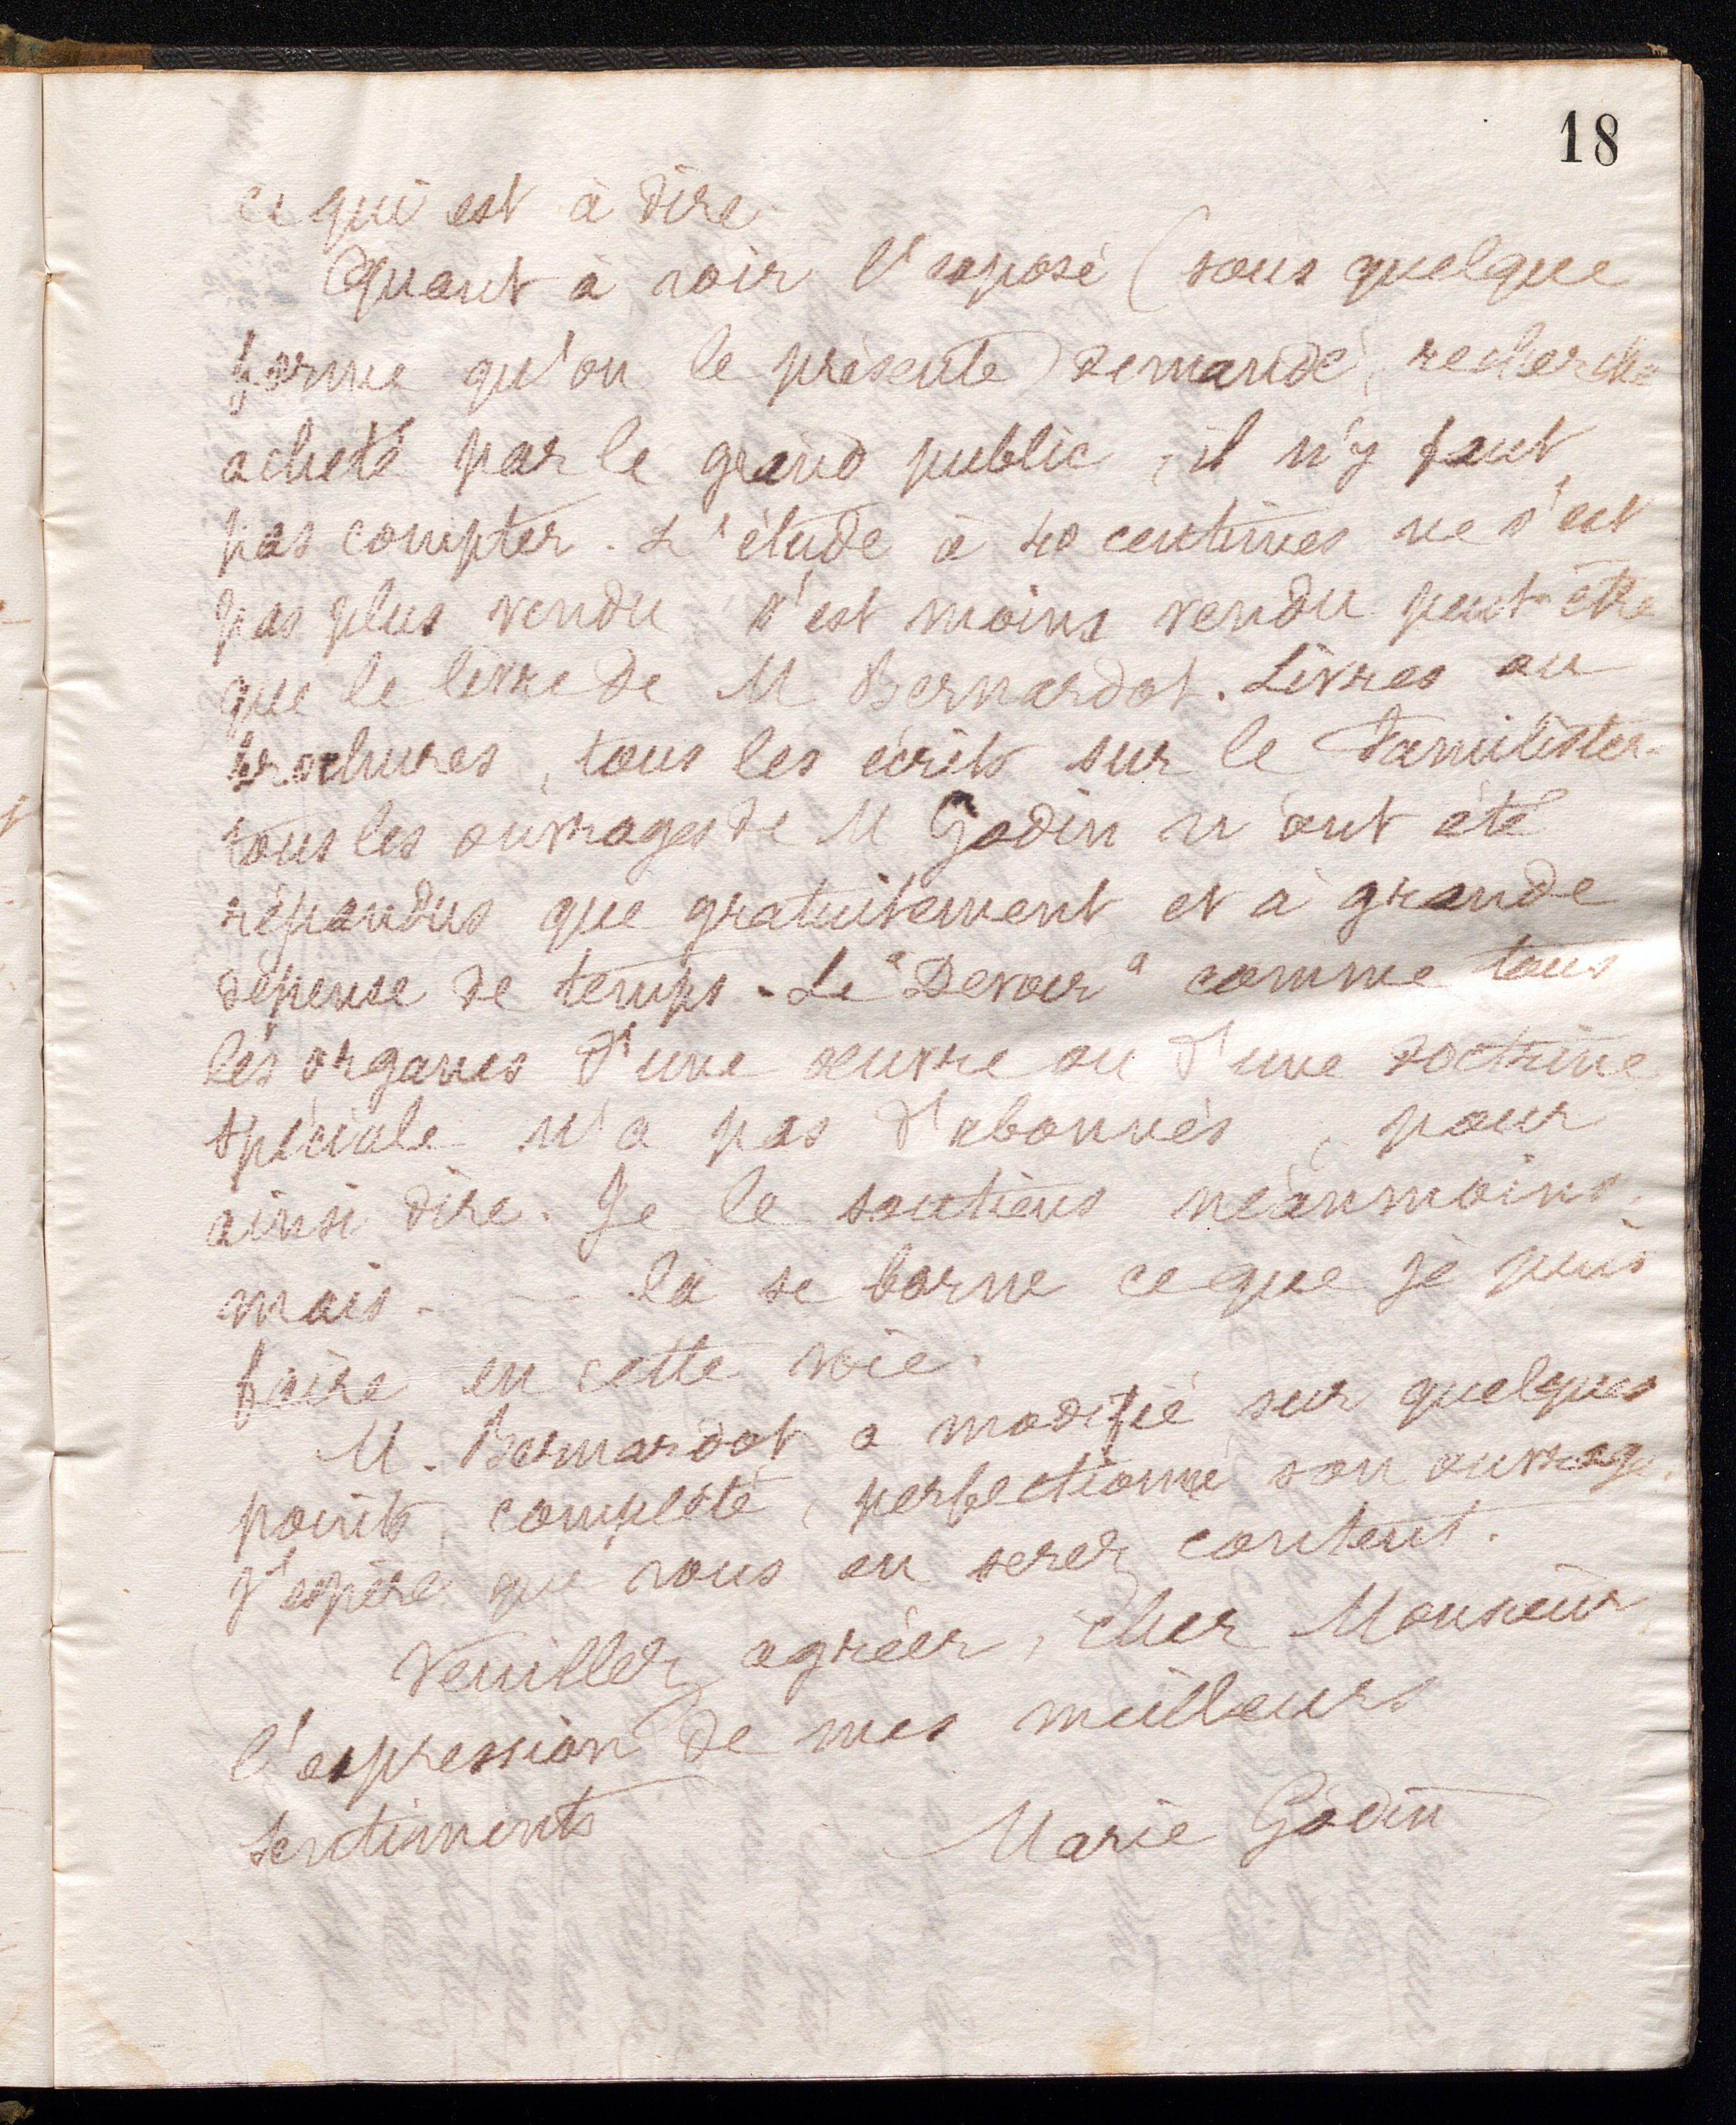 18
ce qui est à dire
Quant à voir l'exposé (sous quelque
forme qu'on le présente) demandé, recherché
acheté par le grand public, il n'y faut
pas compter. L'étude à 40 centimes ne s'est
pas plus vendu, s'est moins vendu peut-être
que le livre de M Bernardot. Livres ou
brochures, tous les écrits sur le Familister
tous les ouvrages de M Godin n'ont été
répandus que gratuitement et à grande
dépense de temps. Le "Devoir" comme tous
les organes d'une œuvre ou d'une doctrine
spéciale n'a pas d'abonnés, pour
ainsi dire. Je le soutiens néanmoins,
mais - - - là se borne ce que je puis
faire en cette voie.
M. Bernardot a modifié sur quelques
points, complété, perfectionné son ouvrage.
J'espère que vous en serez content.
Veuillez agréer, cher Monsieur,
l'expression de mes meilleurs
sentiments
Marie Godin